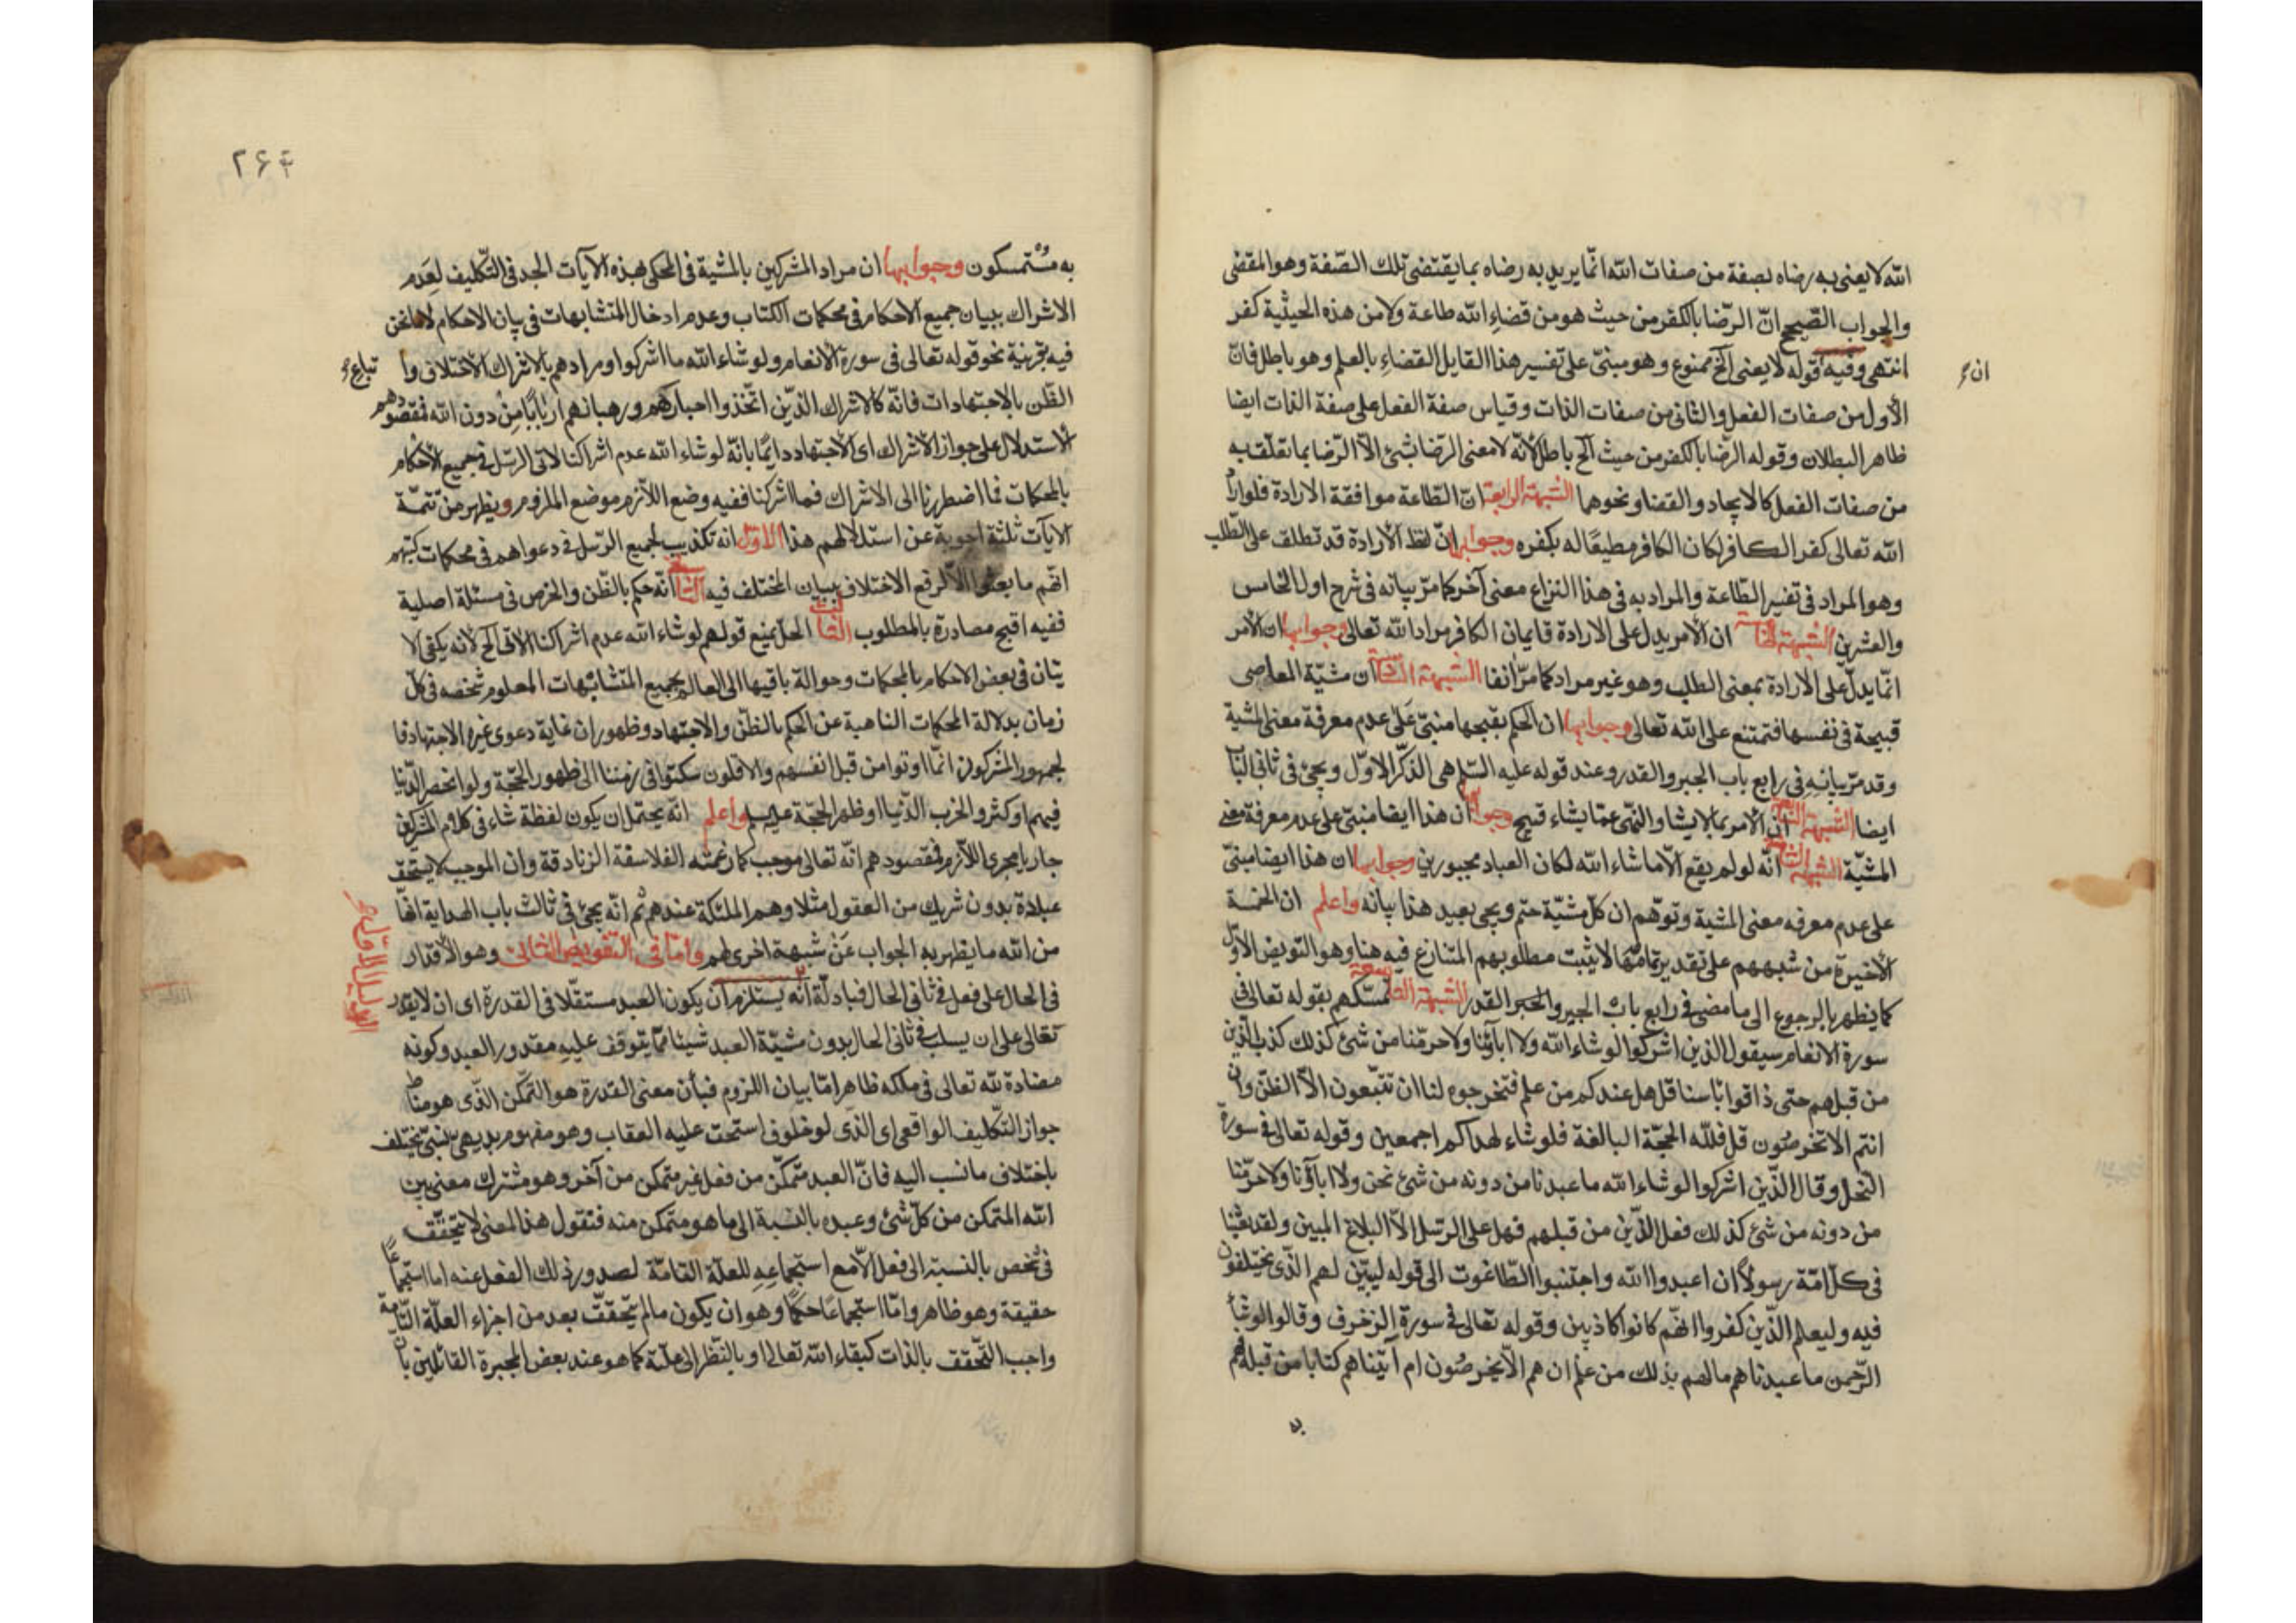 الله لا يعنى به رضاه بصفة من صفات الله انّما يريد به رضاه بما يقتضى تلك الصّفة وهو المقضى
والجواب الصّحيح انّ الرّضا بالكفر من حيث هو من قضاءِ الله طاعة ولا من هذه الحيثية كفر
انتهى وفيه قوله لا يعنى الخ ممنوع وهو مبنىّ على تفسير هذا القايل القضاءِ بالعلم وهو باطل فانّ
ان
الأول من صفات الفعل والثانى من صفات الذات وقياس صفة الفعل على صفة الذات ايضا
ظاهر البطلان وقوله الرّضا بالكفر من حيث الخ باطل لأنّه لا معنى الرّضا بشئ الّا الرّضا بما تعلّق به
من صفات الفعل كالايجاد والقضا ونحوهما الشبهة الرابعة انّ الطّاعة موافقة الارادة فلو اراد
الله تعالى كفر الكافر لكان الكافر مطيعًا له بكفره وجوابها انّ لفظ الأرادة قد تطلق على الطّلب
وهو المراد فى تفسير الطّاعة والمراد به فى هذا النزاع معنى آخر كما مرّ بيانه فى شرح اول الخامس
والعشرين الشبهة الخامسة ان الأمر يدل على الارادة فايمان الكافر مراد الله تعالى وجوابها ان الأمر
انّما يدلّ على الأرادة بمعنى الطلب وهو غير مراد كما مرّ انفا الشبهة السادسة ان مشيّة المعاصى
قبيحة فى نفسها فتمتنع على الله تعالى وجوابها ان الحكم بقبحها مبنىّ على عدم معرفة معنى المشية
وقد مرّ بيانه فى رابع باب الجبر والقدر وعند قوله عليه السّلم هى الذكر الاوّل ويجئ فى ثانى الباب
ايضا الشبهة السابعة ان الأمر بما لا يشا والنّهى عمّا يشاء قبيح وجوابها ان هذا ايضا مبنىّ على عدم معرفة معنى
المشيّة الشبهة الثامنة انّه لو لم يقع الّا ما شاء الله لكان العباد مجبورين وجوابها ان هذا ايضا مبنىّ
على عدم معرفه معنى المشية وتوهّم ان كلّ مشيّة حتم ويجى بعيد هذا بيانه واعلم ان الخمسة
الأخيرة من شبههم على تقدير تمامها لا يثبت مطلوبهم المتنازع فيه هنا وهو التويض الاوّل
كما يظهر بالرجوع الى ما مضى فى رابع باب الجبر والقدر الشبهة التاسعة تمسّكهم بقوله تعالى فى
سورة الانعام سيقول الذين اشركوا لو شاء الله ولا اباؤنا ولا حرّمنا من شئ كذلك كذب الّذين
من قبلهم حتى ذاقوا باسنا قل هل عندكم من علم فتخرجوه لنا ان تتّبعون الّا الظّنّ وان
انتم الا تخرصُون قل فللّه الحجّة البالغة فلو شاء لهداكم اجمعين وقوله تعالى فى سورة
النحل وقال الذّين اشركوا لو شاء الله ما عبدنا من دونه من شئ نحن ولا اباؤنا ولا حرّمنا
من دونه من شئ كذلك فعل الذّين من قبلهم فهل على الرّسل الّا البلاغ المبين ولقد بعثنا
فى كلّ امّة رسولًا ان اعبدوا الله واجتنبوا الطّاغوت الى قوله ليبيّن لهم الذّى يختلفون
فيه وليعلم الذّين كفروا انّهم كانوا كاذبين وقوله تعالى فى سورة الزخرف وقالوا لو شاء
الرّحمن ما عبدناهم ما لهم بذلك من علم ان هم الّا يخرصُون ام آتيناهم كتابا من قبله فهم
٢۶۴
به مُسْتمسكون وجوابها ان مراد المشركين بالمشية فى المحكى بهذه الآيات الجد فى التّكليف لعَدم
الاشراك ببيان جميع الاحكام فى محكمات الكتاب وعدم ادخال المتشابهات فى بيان الاحكام لا ما نحن
فيه بقرينة نحو قوله تعالى فى سورة الأنعام ولو شاء الله ما اشركوا ومرادهم بالاشراك الأختلاف وا تباع
الظّن بالاجتهادات فانّه كالاشراك الذّين اتّخذوا احبارهم ورهبانهم اربابًا من دون الله فمقصودهم
الأستدلال على جواز الأشراك اى الأجتهاد دايمًا بانّه لو شاء الله عدم اشراكنا لاتى الرّسل فى جميع الأحكام
بالمحكمات فما اضطررنا الى الاشراك فما اشركنا ففيه وضع اللّازم موضع الملزوم ويظهر من تتمّة
الايات ثلثة اجوبة عن استدلالهم هذا الاوّل انه تكذيب لجميع الرّسل فى دعواهم فى محكمات كتبهم
انّهم ما بعثوا الّا لرفع الاختلاف ببيان المختلف فيه الثانى انّه حكم بالظّن والخرص فى مسئلة اصلية
ففيه اقبح مصادرة بالمطلوب الثالث الحلّ بمنع قولهم لو شاء الله عدم اشراكنا لاتى الخ لأنه يكفى الا
يتان فى بعض الاحكام بالمحكمات وحوالة باقيها الى العالم بجميع المتشابهات المعلوم شخصه فى كلّ
زمان بدلالة المحكمات الناهية عن الحكم بالظّن والاجتهاد وظهور ان غاية دعوى غيره الاجتهاد فا
لجمهور المشركون انّما اوتوا من قبل انفسهم والاقلون سكتوا فى زمننا الى ظهور الحجّة ولو انحصر الدّنيا
فيهم او كثروا لخرب الدّنيا او ظهر الحجّة واعلم انّه يحتمل ان يكون لفظة شاء فى كلام المشركين
جاريا مجرى اللّازم فمقصودهم انّه تعالى موجب كما زعمته الفلاسفة الزنادقة وان الموجب لا يستحق
عبادة بدون شريك من العقول مثلا وهم الملئكة عندهم ثم انّه يجئ فى ثالث باب الهداية انّها
من الله ما يظهر به الجواب عَنْ شبهة اخرى لهم وامّا فى التفويض الثانى وهو الأقدار
الدليل الاوّل
فى الحال على فعل فى ثانى الحال فبادلّة انّه يستلزم ان يكون العبد مستقلّا فى القدرة اى ان لا يقدر
تعالى على ان يسلب فى ثانى الحال بدون مشيّة العبد شيئا ممّا يتوقف عليه مقدور العبد وكونه
مضادة لله تعالى فى ملكه ظاهر امّا بيان اللزوم فبأن معنى القدرة هو التّمكن الذّى هو مناط
جواز التّكليف الواقعى اى الذّى لو خولف استحق عليه العقاب وهو مفهوم بديهى نسبىّ يختلف
باختلاف ما نسب اليه فانّ العبد متمكّن من فعل غير متمكن من آخر وهو مشترك معنى بين
الله المتمكن من كلّ شئ وعبده بالنسبة الى ما هو متمكن منه فنقول هذا المعنى لا يتحقّق
فى شخص بالنسبة الى فعل الّا مع استجماعه للعلّة التامّة لصدور ذلك الفعل عنه اما استجماعًا
حقيقة وهو ظاهر وامّا استجماعًا حكمًا وهو ان يكون ما لم يتحقّق بعد من اجزاء العلّة التّامة
واجب التّحقق بالذات كبقاء الله تعالى او بالنّظر الى علّة كما هو عند بعض المجبرة القائلين بان